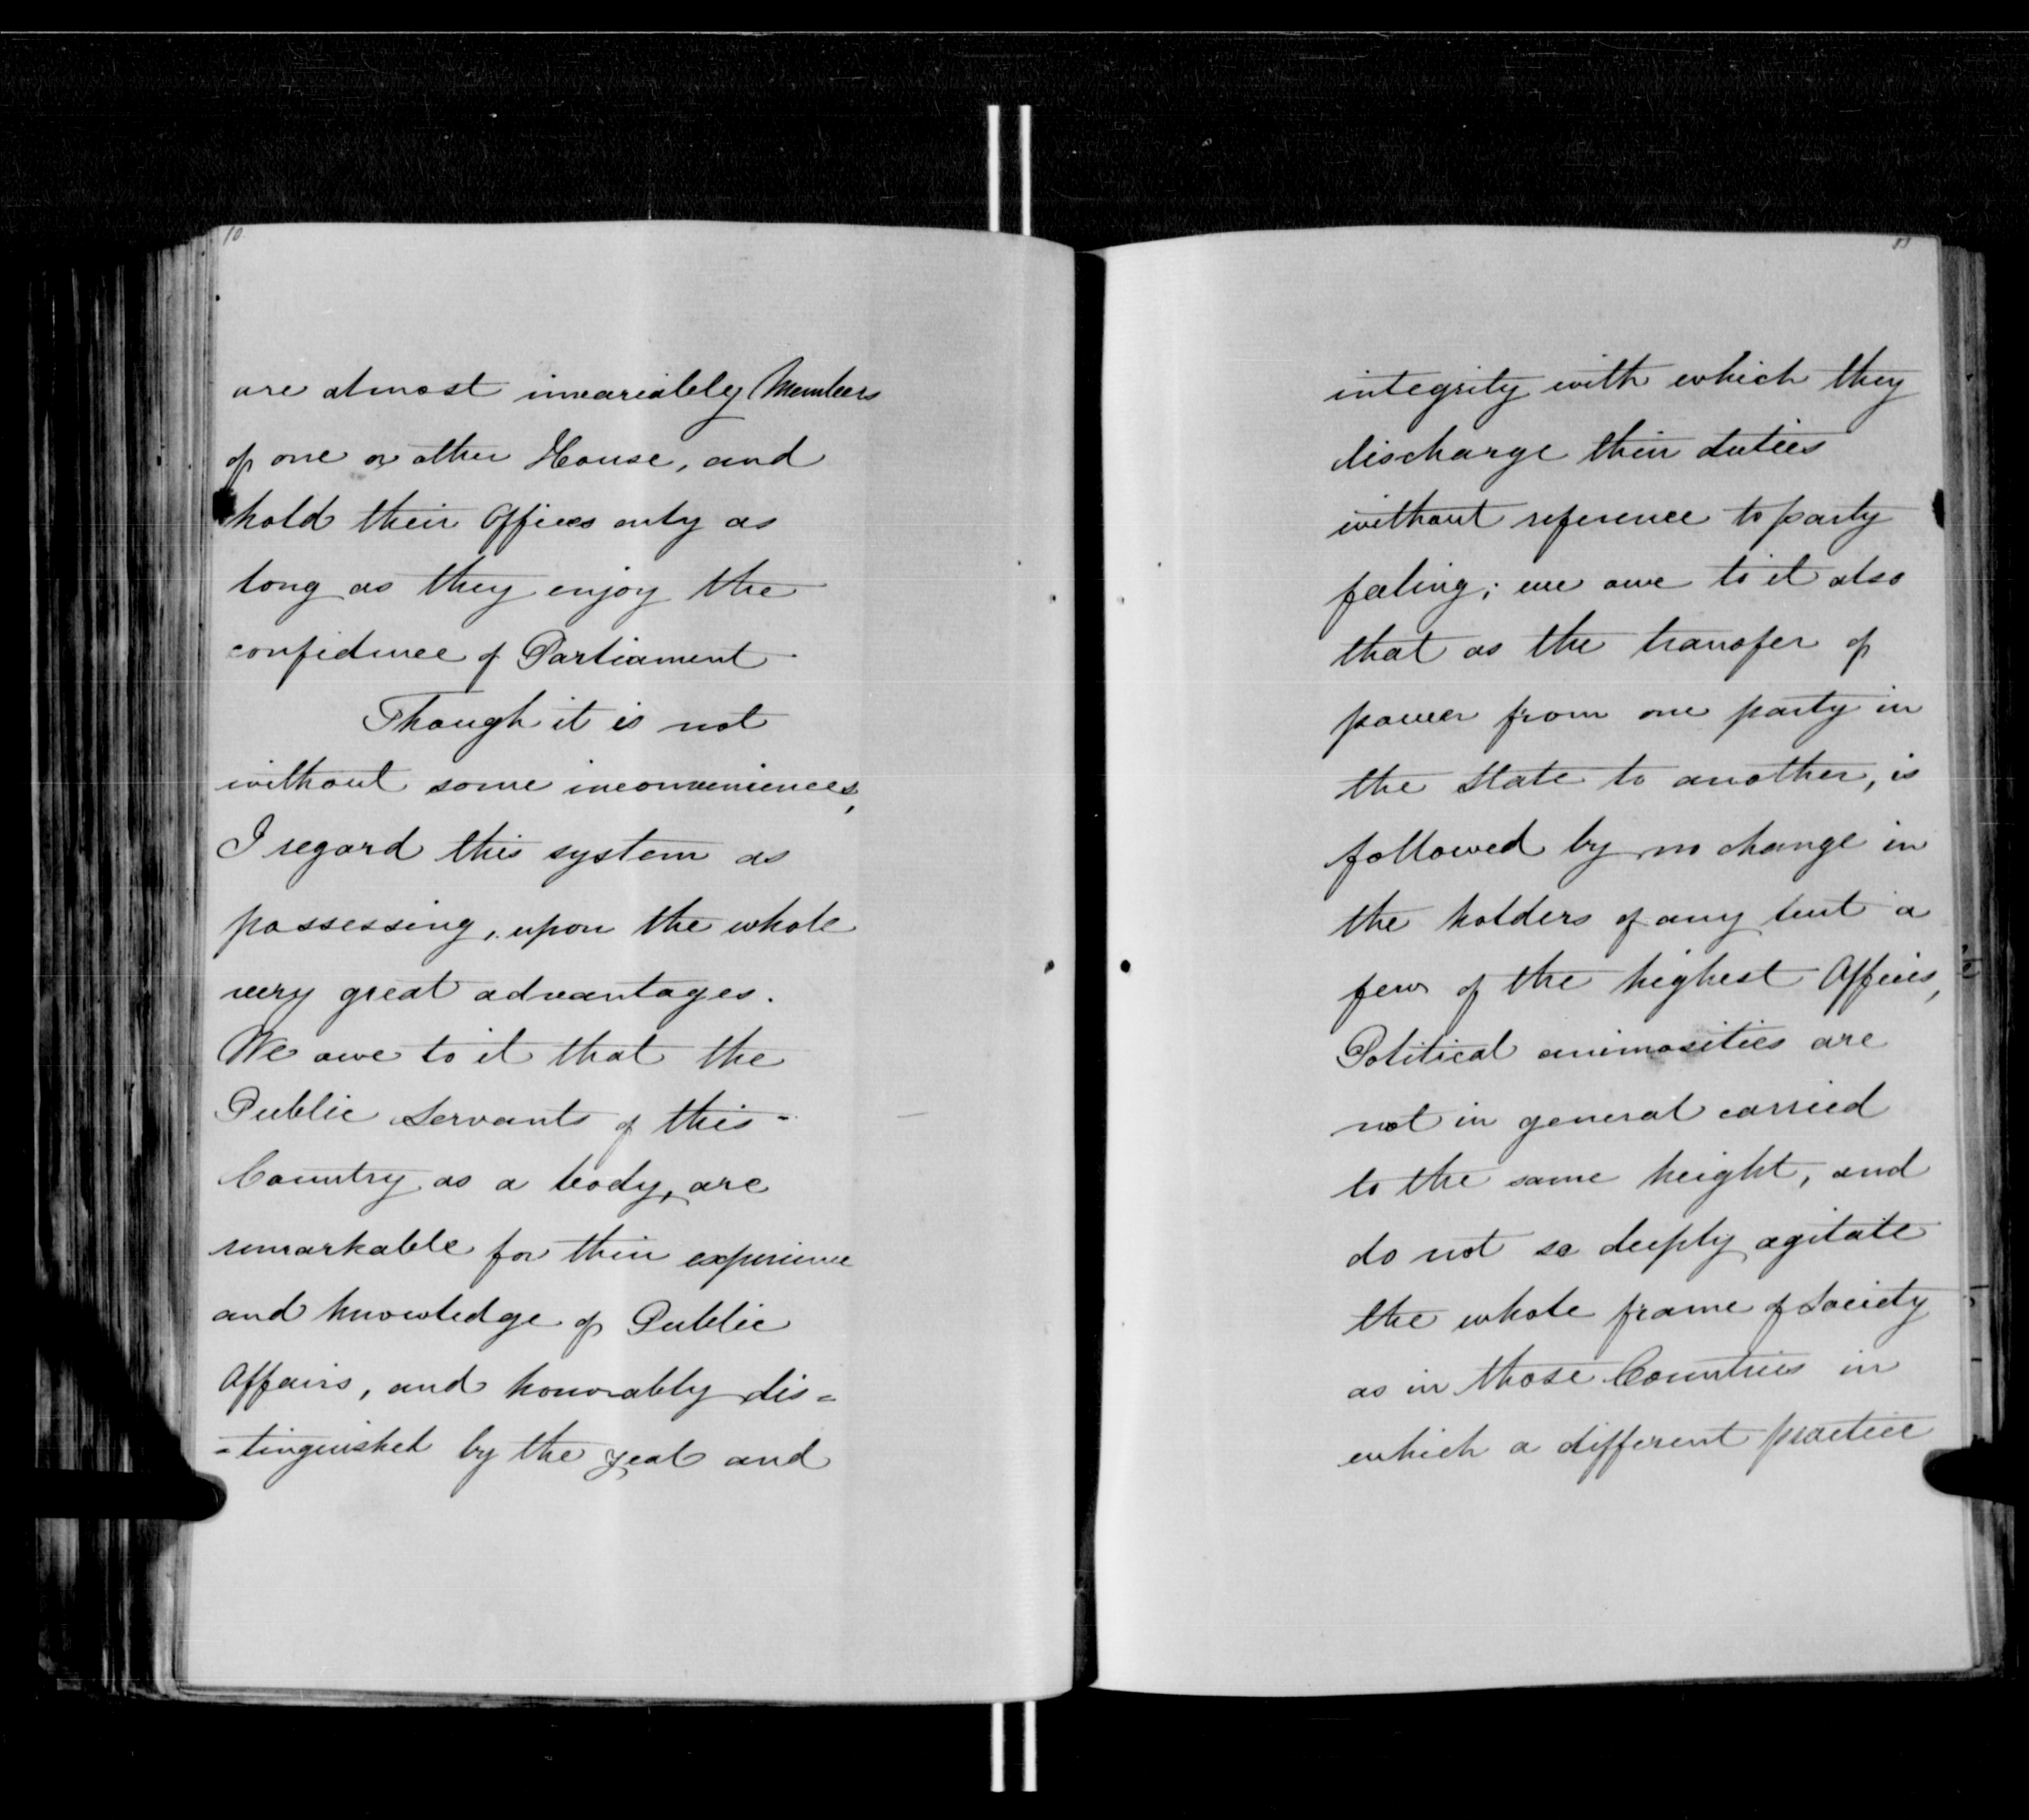 10
are almost invariably Members
of one or other House, and
hold their Offices only as
long as they enjoy the
confidence of Parliament.
Though it is not
without some inconveniences,
I regard this system as
possessing, upon the whole
very great advantages.
We owe to it that the
Public Servants of this
Country as a body, are
remarkable for their experience
and knowledge of Public
Affairs, and honorably dis=
=tinguished by the zeal and
integrity with which they
discharge their duties
without reference to party
feeling; we owe to it also
that as the transfer of
power from one party in
the State to another, is
followed by no change in
the holders of any but a
few of the highest Offices,
Political animosities are
not in general carried
to the same height, and
do not so deeply agitate
the whole frame of Society
as in those Countries in
which a different practice